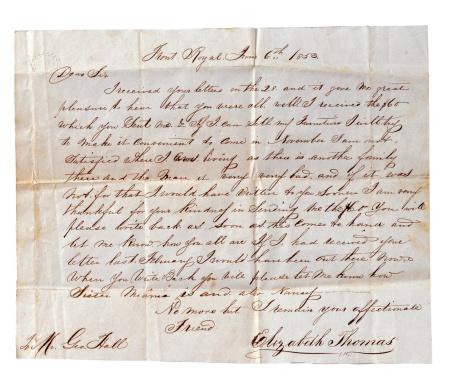 Front Royal June 6th 1853
Dear Sir
I received your letters on the 28 and it gave me great
pleasure to hear that you were all well I received the $60
which you Sent me & If I can Sell my Furniture I will try
to make it convenient to come in November I am not
Satisfied where I am living as there is another family
there and the Man is very very bad and if it was
not for that I would have written to you Sooner I am very
thankful for your kindness in Sending me the You will
please write back as Soon as this comes to hand and
let me know how you all are If I had received your
letter last February I would have been out there Now
When you Write Back you will please let me know how
Sister is and also Nancy
No more but I remain your affectionate
Friend
Elizabeth Thomas
To Mr. Geo Hall